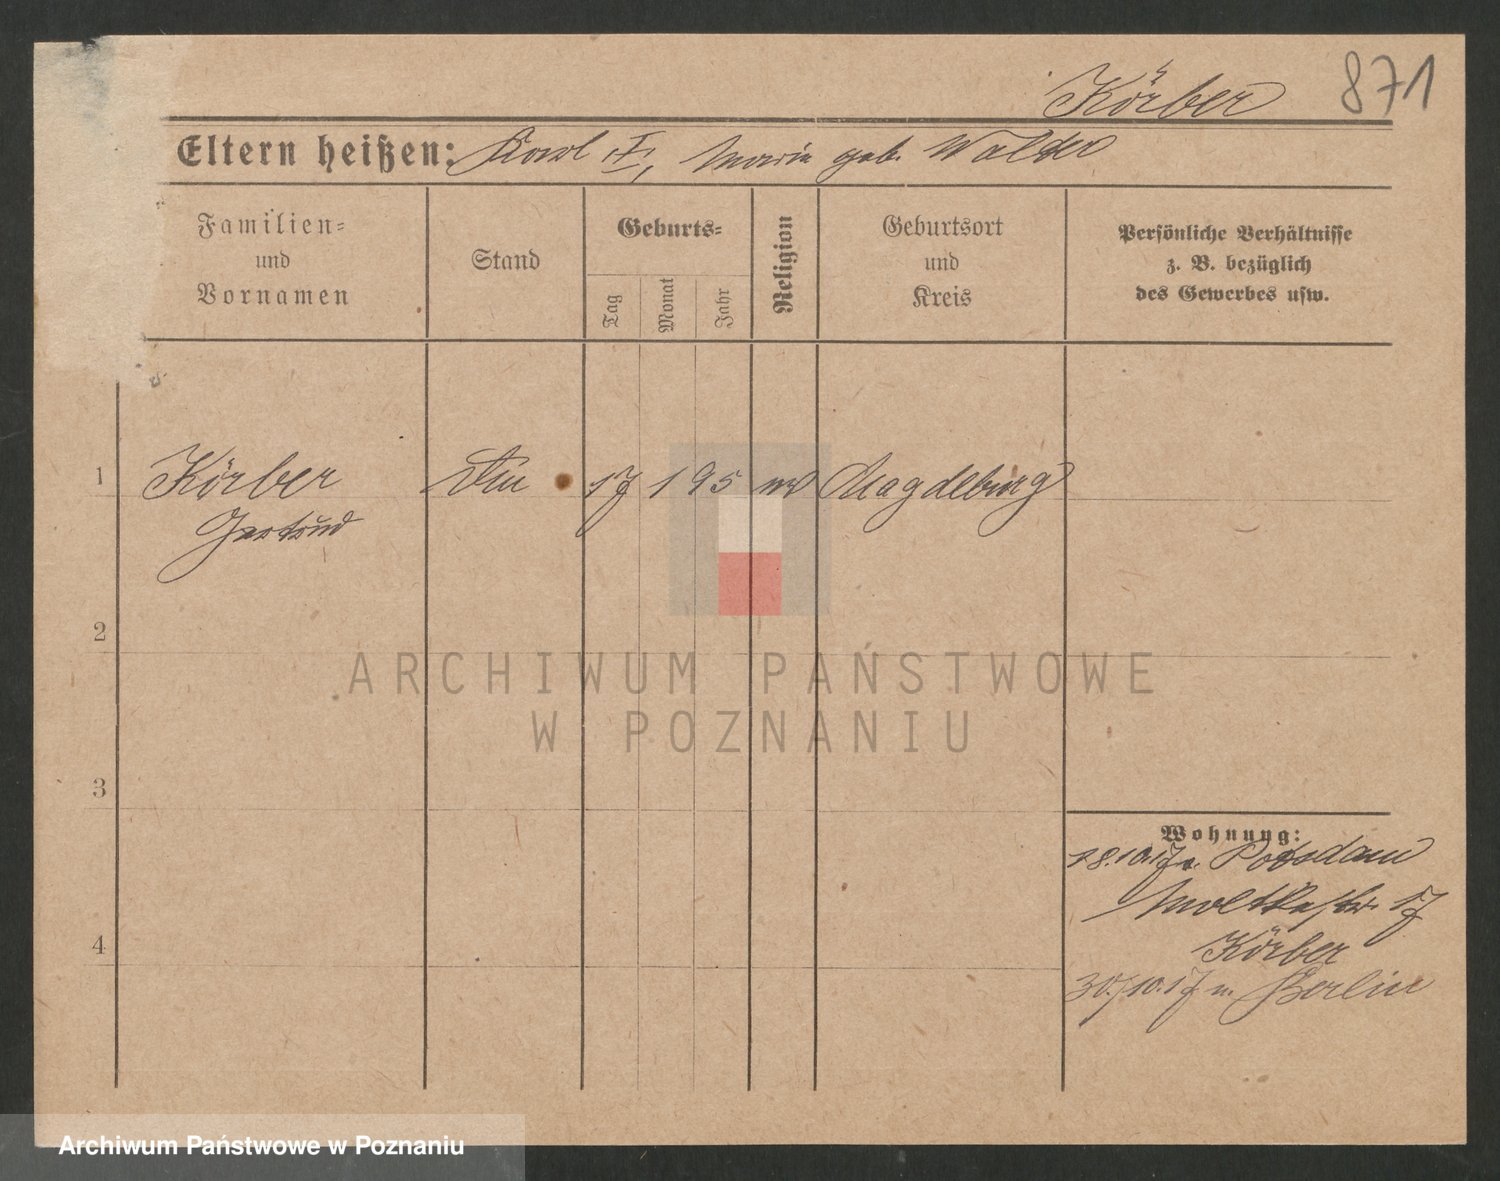 Körber 871
Eltern heißen: Karl †, Marie geb. Walter
Familien=
und
Vornamen
Stand
Geburts=
Tag
Monat
Jahr
Religion
Geburtsort
und
Kreis
Persönliche Verhältnisse
z. B. bezüglich
des Gewerbes usw.
1 Körber 17 1 95 Magdeburg
Gertrud
2
ARCHIWUM PAŃSTWOWE
W POZNANIU
3
Wohnung:
18.10.17 v. Potsdam
Moltkestr. 17
4 Körber
30./10.17 n. Berlin
Archiwum Państwowe w Poznaniu